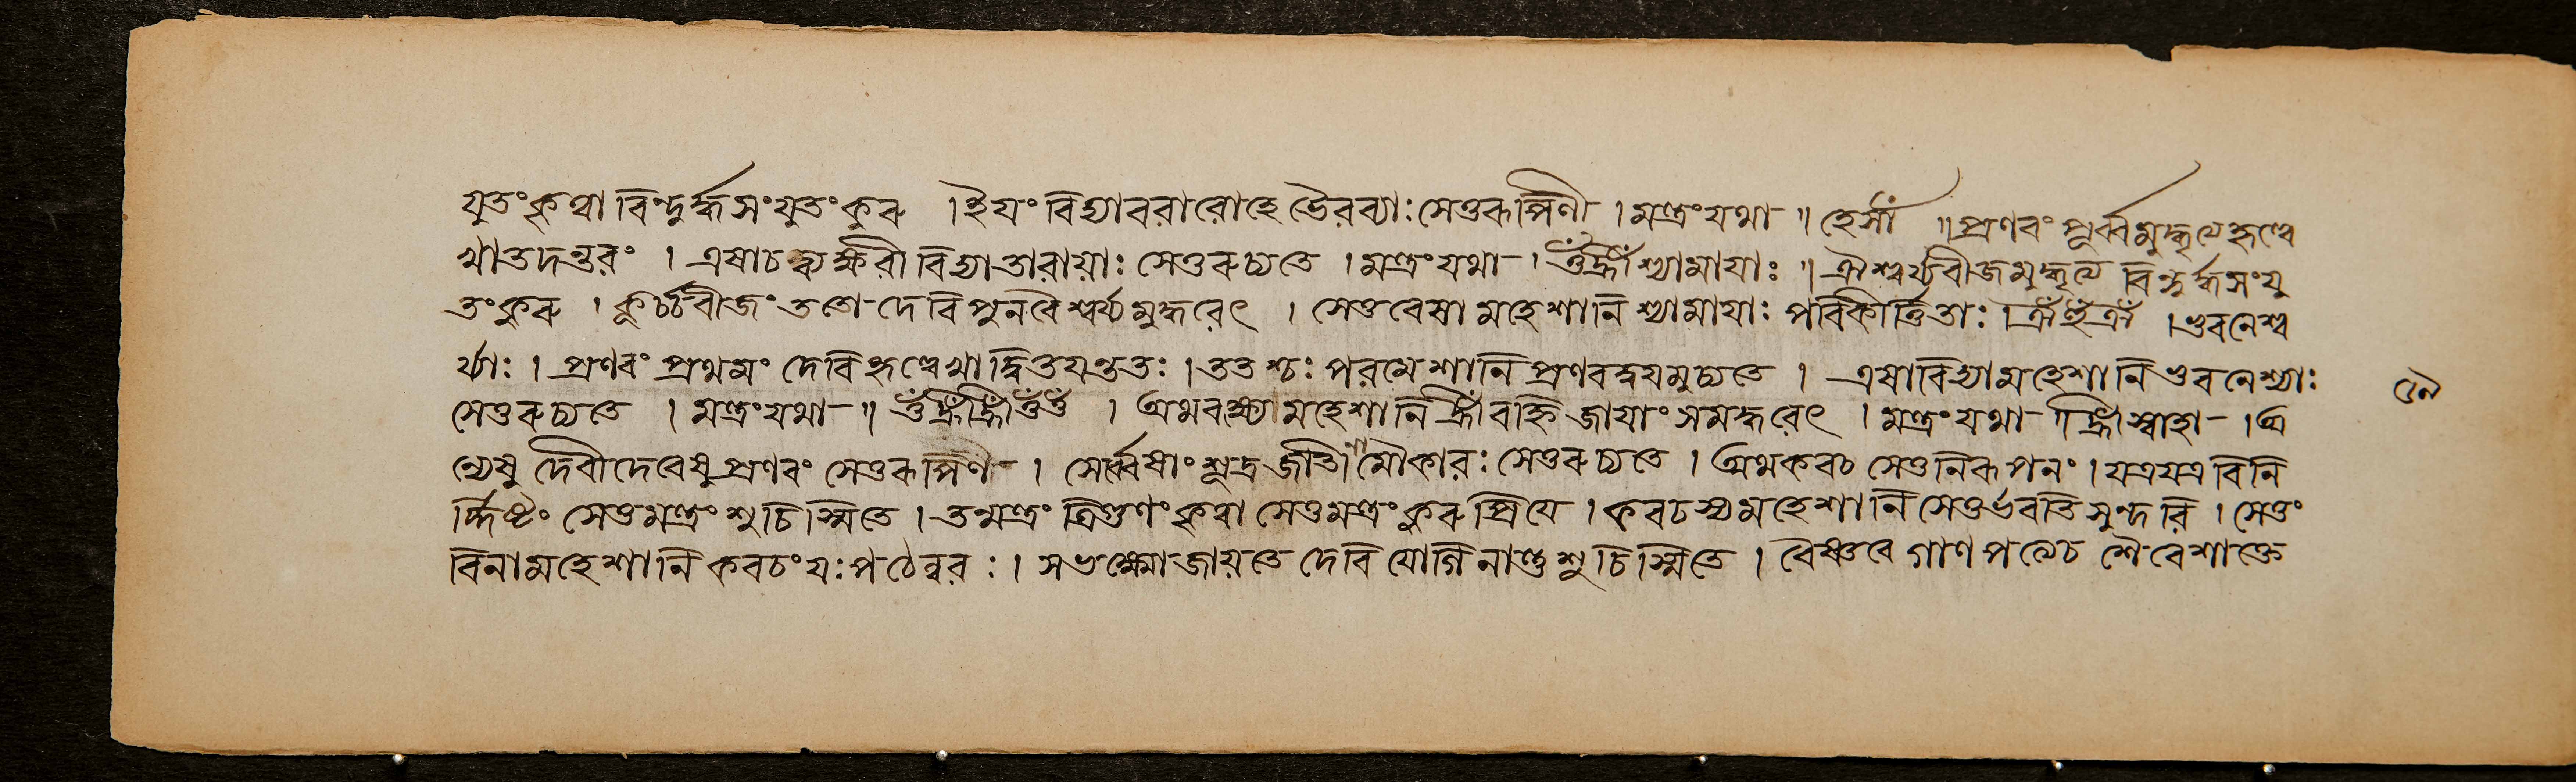 যুতং কৃত্বা বিন্দ্বর্দ্ধসংযুতং কুরু । ইয়ং বিদ্যা বরারোহে ভৈরব্যাঃ সেতুরূপিণী । মন্ত্রং যথা ॥ হেসৌঁ ॥ প্রণবং পূর্ব্বমুদ্ধৃত্য হৃল্লে
খাতদন্তরং । এষা চ দ্ব্যক্ষরী বিদ্যা তারায়াঃ সেতুরুচ্যতে । মন্ত্রং যথা । ওঁ হ্রীঁ শ্যামায়াঃ ॥ ঐশ্বর্য্যবীজমুদ্ধৃত্য বিন্দ্বর্দ্ধসংযু
তং কুরু । কূর্চ্চবীজং ততো দেবি পুনরৈশ্বর্য্যমুদ্ধরেৎ । সেতুরেষা মহেশানি শ্যামায়াঃ পরিকীর্ত্তিতাঃ । ভুবনেশ্ব
র্য্যাঃ । প্রণবং প্রথমং দেবি হৃল্লেখাদ্বিতয়ন্ততঃ । ততশ্চঃ পরমেশানি প্রণবদ্বয়মুচ্যতে । এষা বিদ্যা মহেশানি ভুবনেশ্যাঃ
সেতুরুচ্যতে । মন্ত্রং যথা ॥ ওঁ হ্রীঁ হ্রীঁ ওঁ ওঁ । অথ বক্ষ্যে মহেশানি হ্রীঁ বহ্নিজায়াং সমুদ্ধরেৎ । মন্ত্রং যথা ॥ হ্রীঁ স্বাহা । অ
ন্যেষু দেবীদেবেষু প্রণবং সেতুরূপিণী । সর্ব্বেষাং শূদ্রজাতীনামৌকারঃ সেতুরুচ্যতে । অথ কবচ সেতুনিরূপনং । যত্র যত্র বিনি
র্দ্দিষ্টং সেতুমন্ত্রং শুচিস্মিতে । তন্মন্ত্রং ত্রিগুণং কৃত্বা সেতুমন্ত্রং কুরু প্রিয়ে । কবচস্য মহেশানি সেতুর্ভবতি সুন্দরি । সেতুং
বিনা মহেশানি কবচং যঃ পঠেন্নরঃ । স ভক্ষ্যো জায়তে দেবি যোগিনীনাং শুচিস্মিতে । বৈষ্ণবে গাণপত্যে চ শৈবে শাক্তে